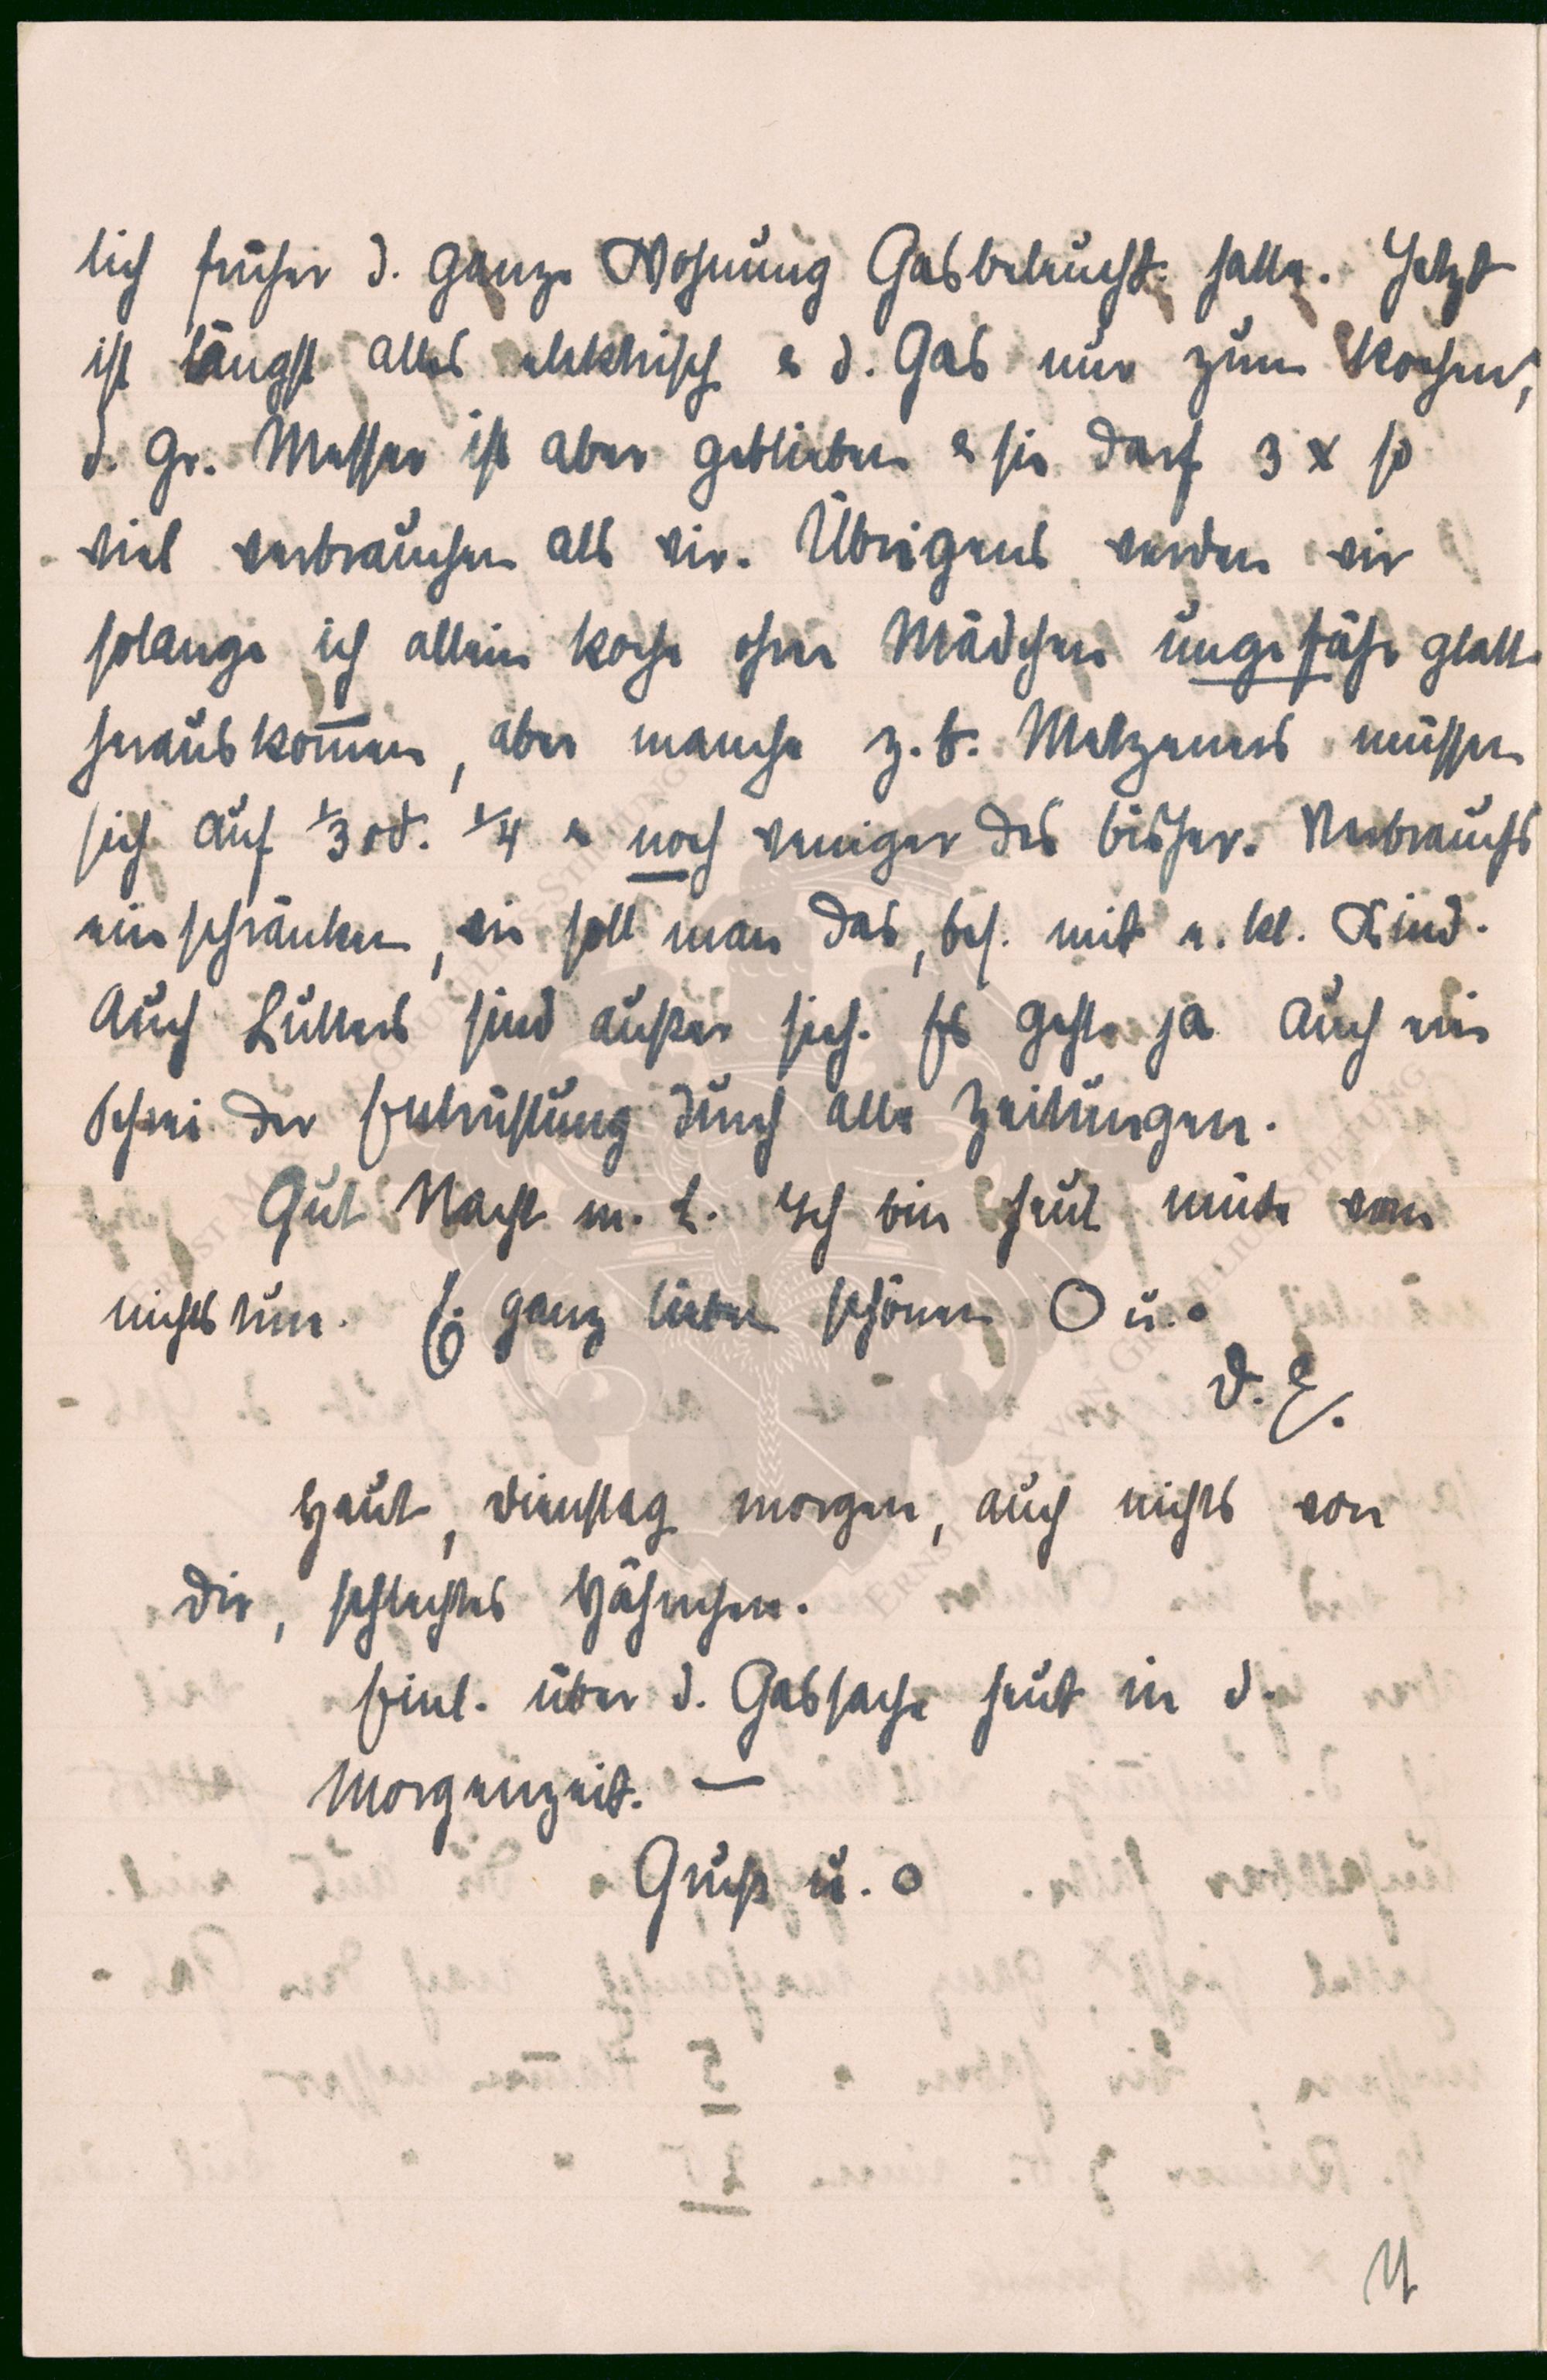 lich früher d. ganze Wohnung Gasbeleucht. hatte. Jetzt
ist längst alles elektrisch & d. Gas nur zum Kochen,
d. gr. Messer ist aber geblieben & sie darf 3 x so
viel verbrauchen als wir. Übrigens werden wir
solange ich allein koche ohne Mädchen ungefähr glatt
herauskom̄en, aber manche z. B. Metzeners müssen
sich auf 1/3 od. 1/4 & noch weniger des bisher. Verbrauchs
einschränken, wie soll man das, bes. mit e. kl. Kind.
Auch Lütters sind außer sich. Es geht ja auch ein
Schrei der Entrüstung durch alle Zeitungen.
Gut Nacht m. L. Ich bin heut müde vom
nichtstun. E. ganz lieben schönen O u. o
D. E.
Heut, Dienstag morgen, auch nichts von
Dir, schlechtes Hähnchen.
Einl. über d. Gassache heut in d.
Morgenzeit. —
Gruß u. o
4
ERNST MAX VON GRUNELIUS-STIFTUNG
ERNST MAX VON GRUNELIUS-STIFTUNG